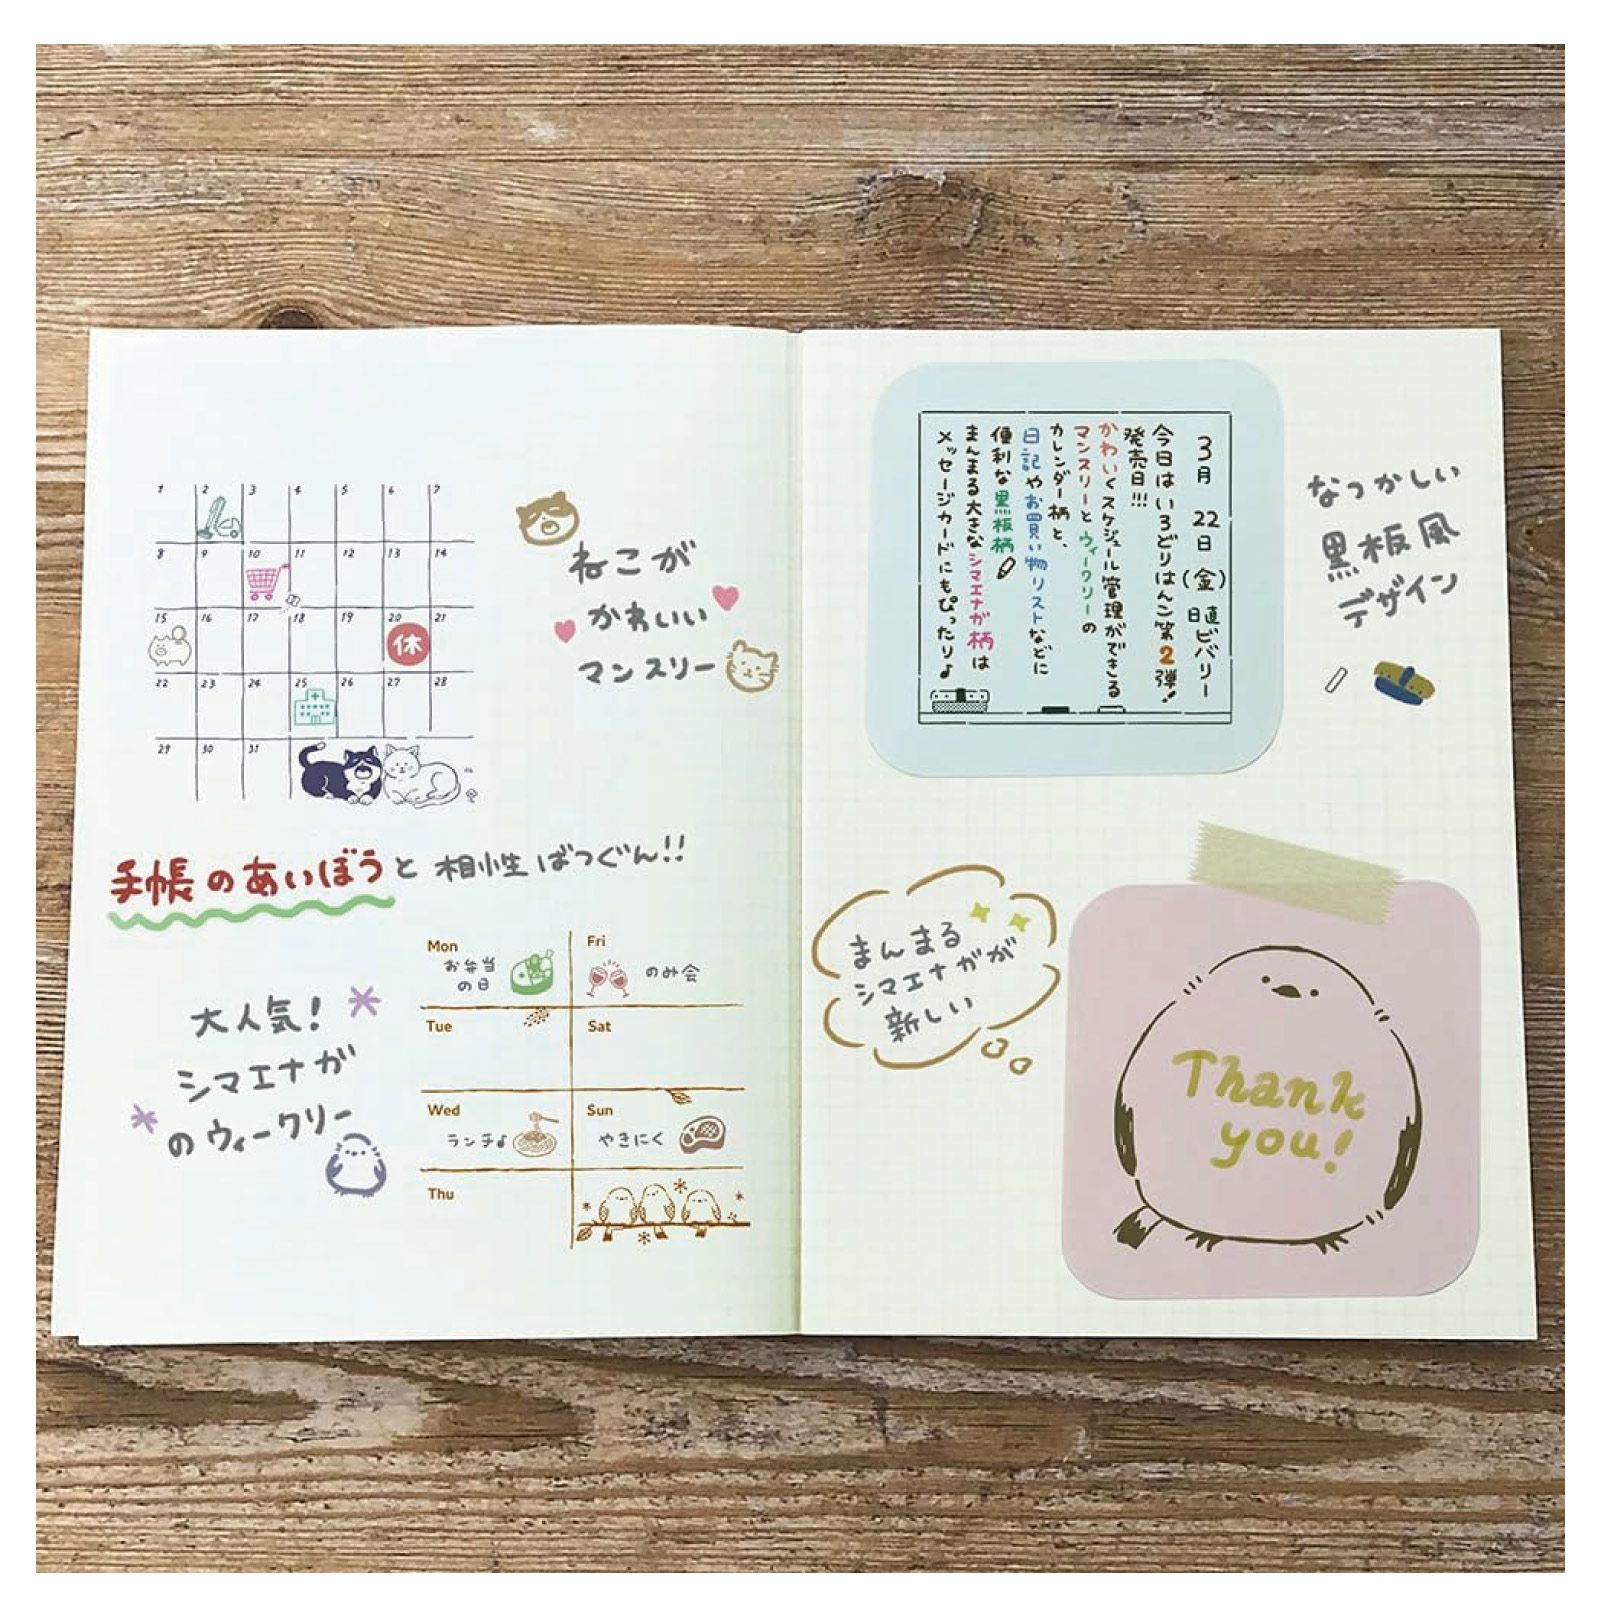 1 2 3 4 5 6 7
8 9 10 11 12 13 14
15 16 17 18 19 20 21
休
22 23 24 25 26 27 28
29 30 31
ねこが
かわいい
マンスリー
手帳のあいぼうと相性ばつぐん!!
大人気!
シマエナガ
のウィークリー
Mon
お弁当
の日
Fri
のみ会
Tue
Sat
Wed
ランチ♪
Sun
やきにく
Thu
3月22日(金)日直ビバリー
今日はいろどりはんこ第2弾♪
発売日!!!
かわいくスケジュール管理ができる
マンスリーとウィークリーの
カレンダー柄と、
日記やお買い物リストなどに
便利な黒板柄
まんまる大きなシマエナガ柄は
メッセージカードにもぴったり♪
なつかしい
黒板風
デザイン
まんまる
シマエナガが
新しい
Thank
you!